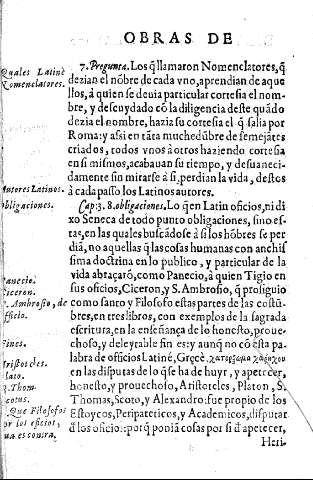 OBRAS DE
7. Pregunta. Los q̃ llamaron Nomenclatores, q̃
dezian el nõbre de cada vno, aprendian de aque
llos, à quien se deuia particular cortesia el nom-
bre, y descuydado cõ la diligencia deste quãdo
dezia el nombre, hazia su cortesia el q̃ salia por
Roma: y assi en tãta muchedũbre de semejãtes
criados, todos vnos à otros haziendo cortesia
en si mismos, acabauan su tiempo, y desuaneci-
damente sin mirarse à si, perdian la vida, destos
à cada passo los Latinos autores.
Cap: 3. 8. obligaciones. Lo q̃ en Latin oficios, ni di
xo Seneca de todo punto obligaciones, sino es-
tas, en las quales buscãdose à si los hõbres se per
diã, no aquellas q̃ las cosas humanas con anchis
sima doctrina en lo publico, y particular de la
vida abraçarõ, como Panecio, à quien Tigio en
sus oficios, Ciceron, y S. Ambrosio, q̃ prosiguio
como santo y Filosofo estas partes de las costũ-
bres, en tres libros, con exemplos de la sagrada
escritura, en la enseñança de lo honesto, proue-
choso, y deleytable fin es: y aunq̃ no cõ esta pa-
labra de oficios Latinè, Grẹcè
en las disputas de lo q̃ se ha de huyr, y apetecer,
honesto, y prouechoso, Aristoteles, Platon, S.
Thomas, Scoto, y Alexandro: fue propio de los
Estoycos, Peripateticos, y Academicos, disputar
d̃ los oficios: porq̃ poniã cosas por si d̃ apetecer,
Heri-
Quales Latinè
Nomenclatores.
Autores Latinos.
Obligaciones.
Panecio.
Ciceron.
S. Ambrosio, de
officio.
Fines.
Aristoteles.
Plato.
S. Thom.
Scotus.
Que Filosofos
por los oficios,